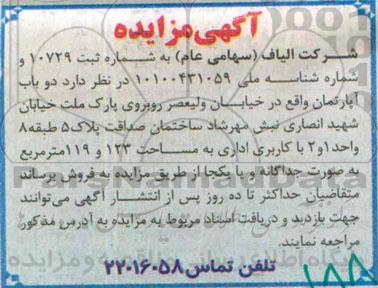 آگهی مزایده
شرکت الیاف (سهامی عام) به شماره ثبت ۱۰۷۲۹ و
شماره شناسه ملی ۱۰۱۰۰۴۳۱۰۵۹ در نظر دارد دو باب
آپارتمان واقع در خیابان ولیعصر روبروی پارک ملت خیابان
شهید انصاری نبش مهرشاد ساختمان صداقت پلاک۵ طبقه۸
واحد۱و۲ با کاربری اداری به مساحت ۱۲۳ و ۱۱۹مترمربع
به صورت جداگانه و یا یکجا از طریق مزایده به فروش برساند
متقاضیان حداکثر تا ده روز پس از انتشار آگهی می‌توانند
جهت بازدید و دریافت اسناد مربوط به مزایده به آدرس مذکور
مراجعه نمایند.
تلفن تماس۲۲۰۱۶۰۵۸
۱۸۵